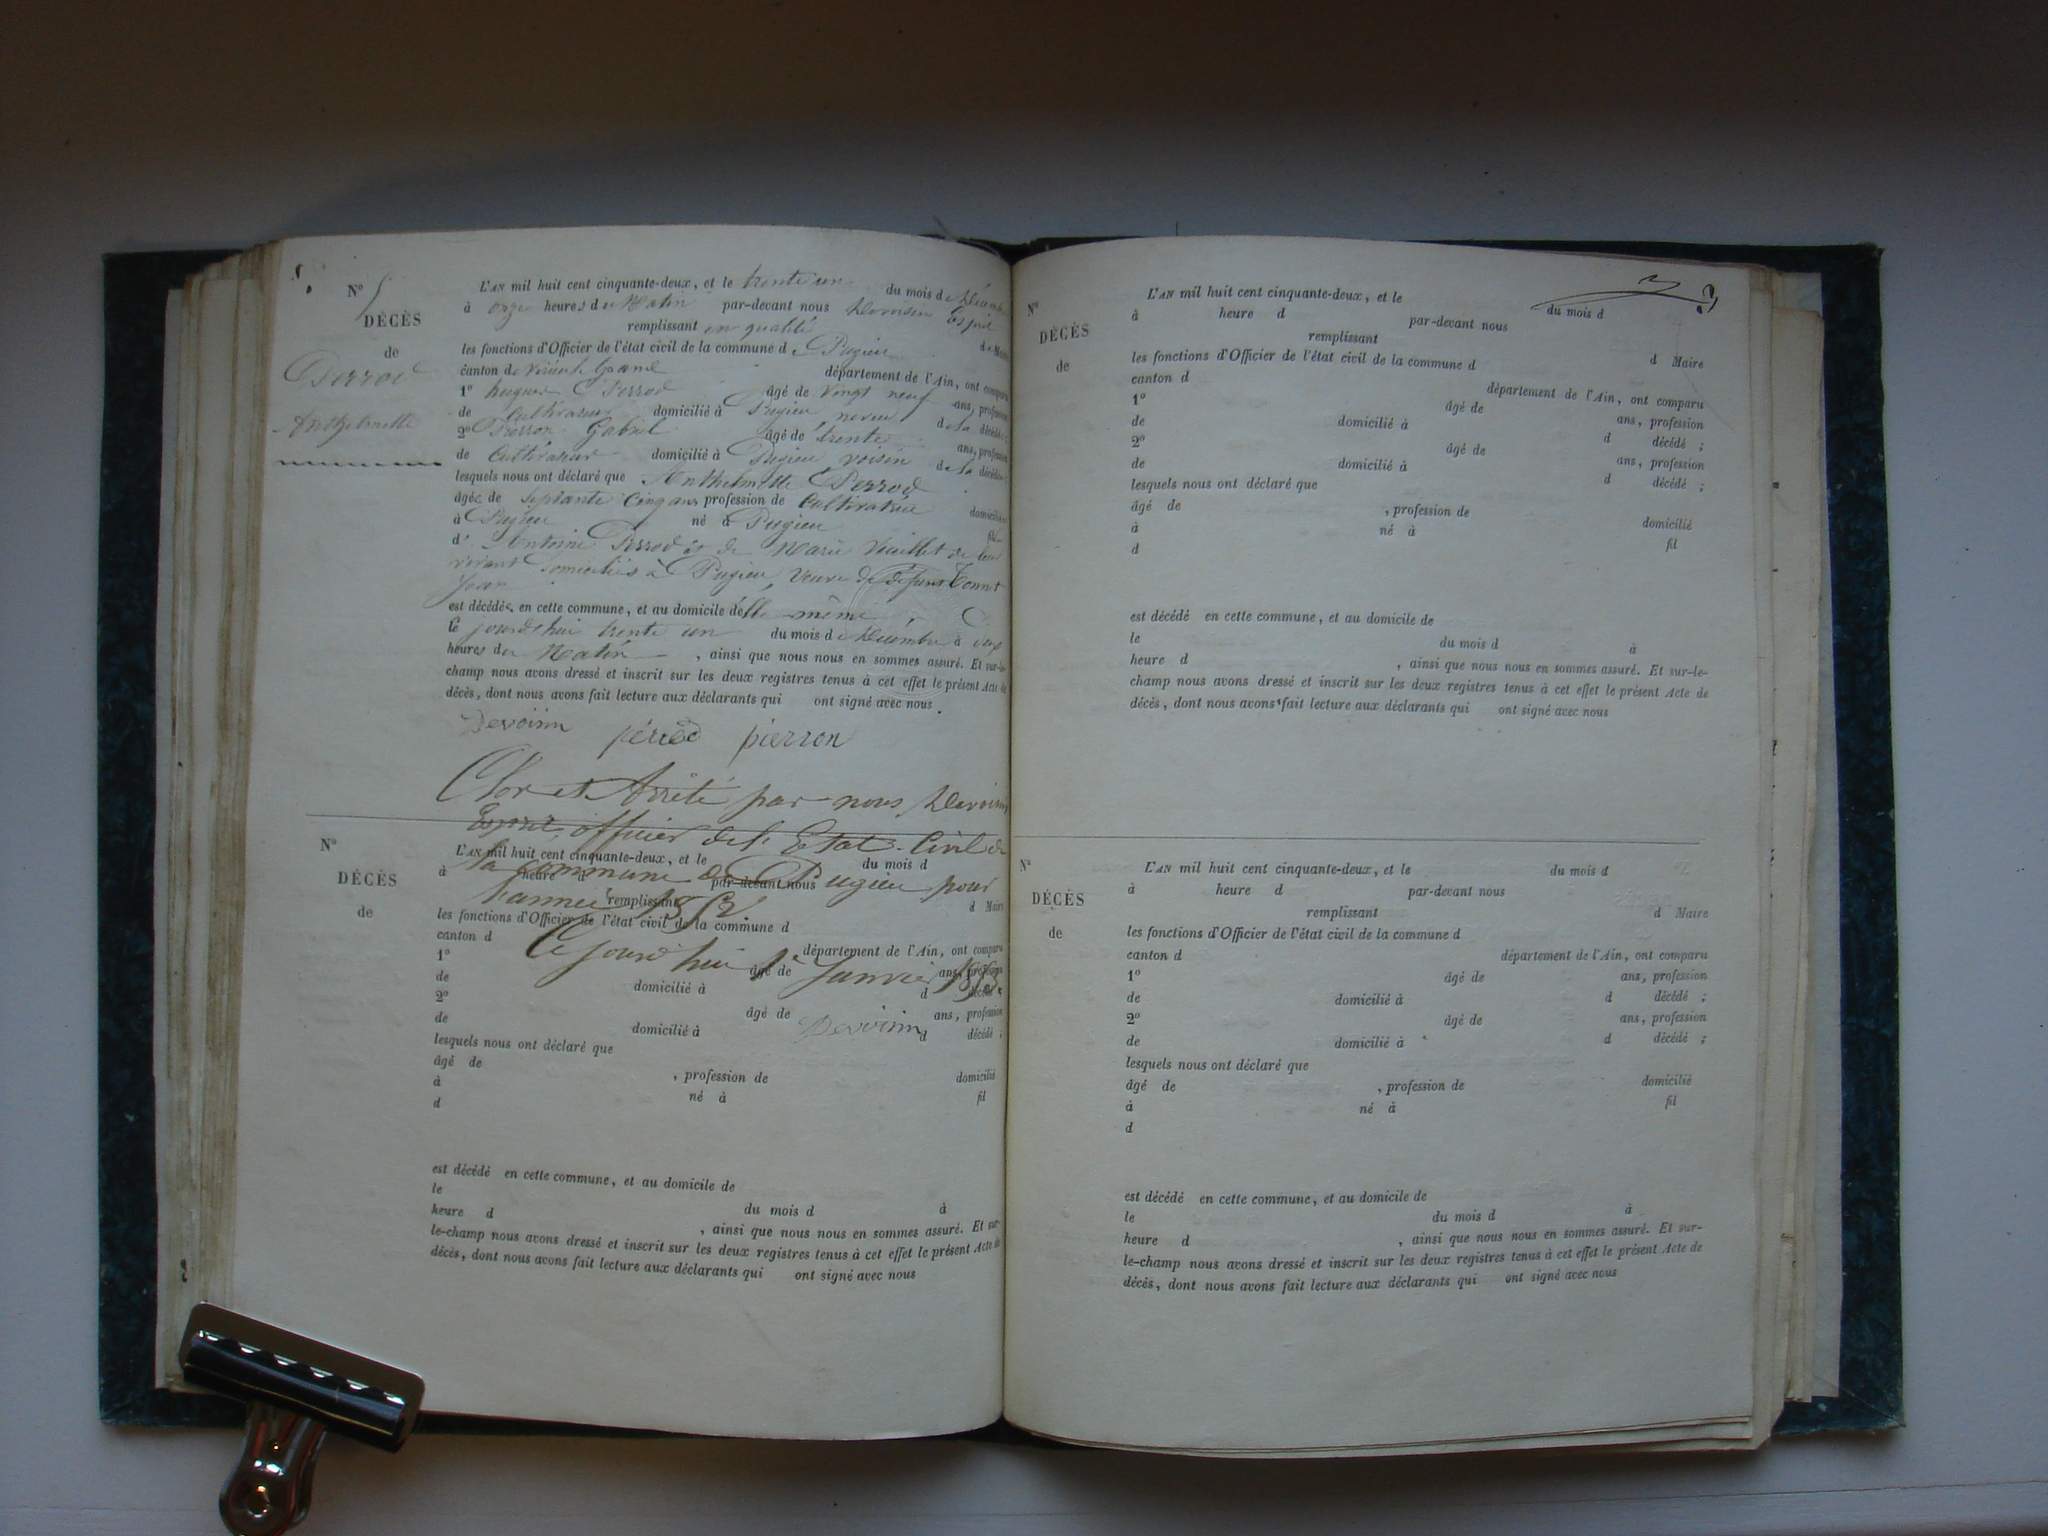 N° 5
DÉCÈS
de
Perrod
Anthelmette
L'AN mil huit cent cinquante-deux, et le trente un du mois de Décembre
à onze heures du Matin par-devant nous Devoisin Esprit
remplissant en qualité de Maire
les fonctions d'Officier de l'état civil de la commune de Pugieu
canton de Virieu le Grand département de l'Ain, ont comparu
1° hugues Perrod âgé de vingt neuf ans, profession
de Cultivateur domicilié à Pugieu neveu de la décédée ;
2° Pierron Gabriel âgé de trente ans, profession
de Cultivateur domicilié à Pugieu voisin de la décédée
lesquels nous ont déclaré que Anthelmette Perrod
âgée de septante cinq ans profession de Cultivatrice domiciliée
à Pugieu né à Pugieu fil
d' Antoine Perrod et de Marie Vuaillet de leur
vivant domiciliés à Pugieu, veuve de défunt
Jean
est décédée en cette commune, et au domicile d'elle même
le jourd'hui trente un du mois de Décembre à
heures du Matin , ainsi que nous nous en sommes assuré. Et sur-le-
champ nous avons dressé et inscrit sur les deux registres tenus à cet effet le présent Acte de
décès, dont nous avons fait lecture aux déclarants qui ont signé avec nous.
Devoisin périod pierron
Clos et Arrêté par nous Devoisin
Esprit officier de l'Etat-Civil de
la commune de Pugieu pour
l'année 1852.
Ce jourd'hui 1er Janvier 1853.
Devoisin
N°
DÉCÈS
de
L'AN mil huit cent cinquante-deux, et le du mois d
à heure d par-devant nous
remplissant d Maire
les fonctions d'Officier de l'état civil de la commune d
canton d département de l'Ain, ont comparu
1° âgé de ans, profession
de domicilié à d décédé ;
2° âgé de ans, profession
de domicilié à d décédé ;
lesquels nous ont déclaré que
âgé de , profession de domicilié
à né à fil
d
est décédé en cette commune, et au domicile de
le du mois d à
heure d , ainsi que nous nous en sommes assuré. Et sur-
le-champ nous avons dressé et inscrit sur les deux registres tenus à cet effet le présent Acte de
décès, dont nous avons fait lecture aux déclarants qui ont signé avec nous
N°
DÉCÈS
de
L'AN mil huit cent cinquante-deux, et le du mois d
à heure d par-devant nous
remplissant
les fonctions d'Officier de l'état civil de la commune d d Maire
canton d département de l'Ain, ont comparu
1° âgé de ans, profession
de domicilié à d décédé ;
2° âgé de ans, profession
de domicilié à d décédé ;
lesquels nous ont déclaré que
âgé de , profession de domicilié
à né à fil
d
est décédé en cette commune, et au domicile de
le du mois d à
heure d , ainsi que nous nous en sommes assuré. Et sur-le-
champ nous avons dressé et inscrit sur les deux registres tenus à cet effet le présent Acte de
décès, dont nous avons fait lecture aux déclarants qui ont signé avec nous
N°
DÉCÈS
de
L'AN mil huit cent cinquante-deux, et le du mois d
à heure d par-devant nous
remplissant d Maire
les fonctions d'Officier de l'état civil de la commune d
canton d département de l'Ain, ont comparu
1° âgé de ans, profession
de domicilié à d décédé ;
2° âgé de ans, profession
de domicilié à d décédé ;
lesquels nous ont déclaré que
âgé de , profession de domicilié
à né à fil
d
est décédé en cette commune, et au domicile de
le du mois d à
heure d , ainsi que nous nous en sommes assuré. Et sur-
le-champ nous avons dressé et inscrit sur les deux registres tenus à cet effet le présent Acte de
décès, dont nous avons fait lecture aux déclarants qui ont signé avec nous